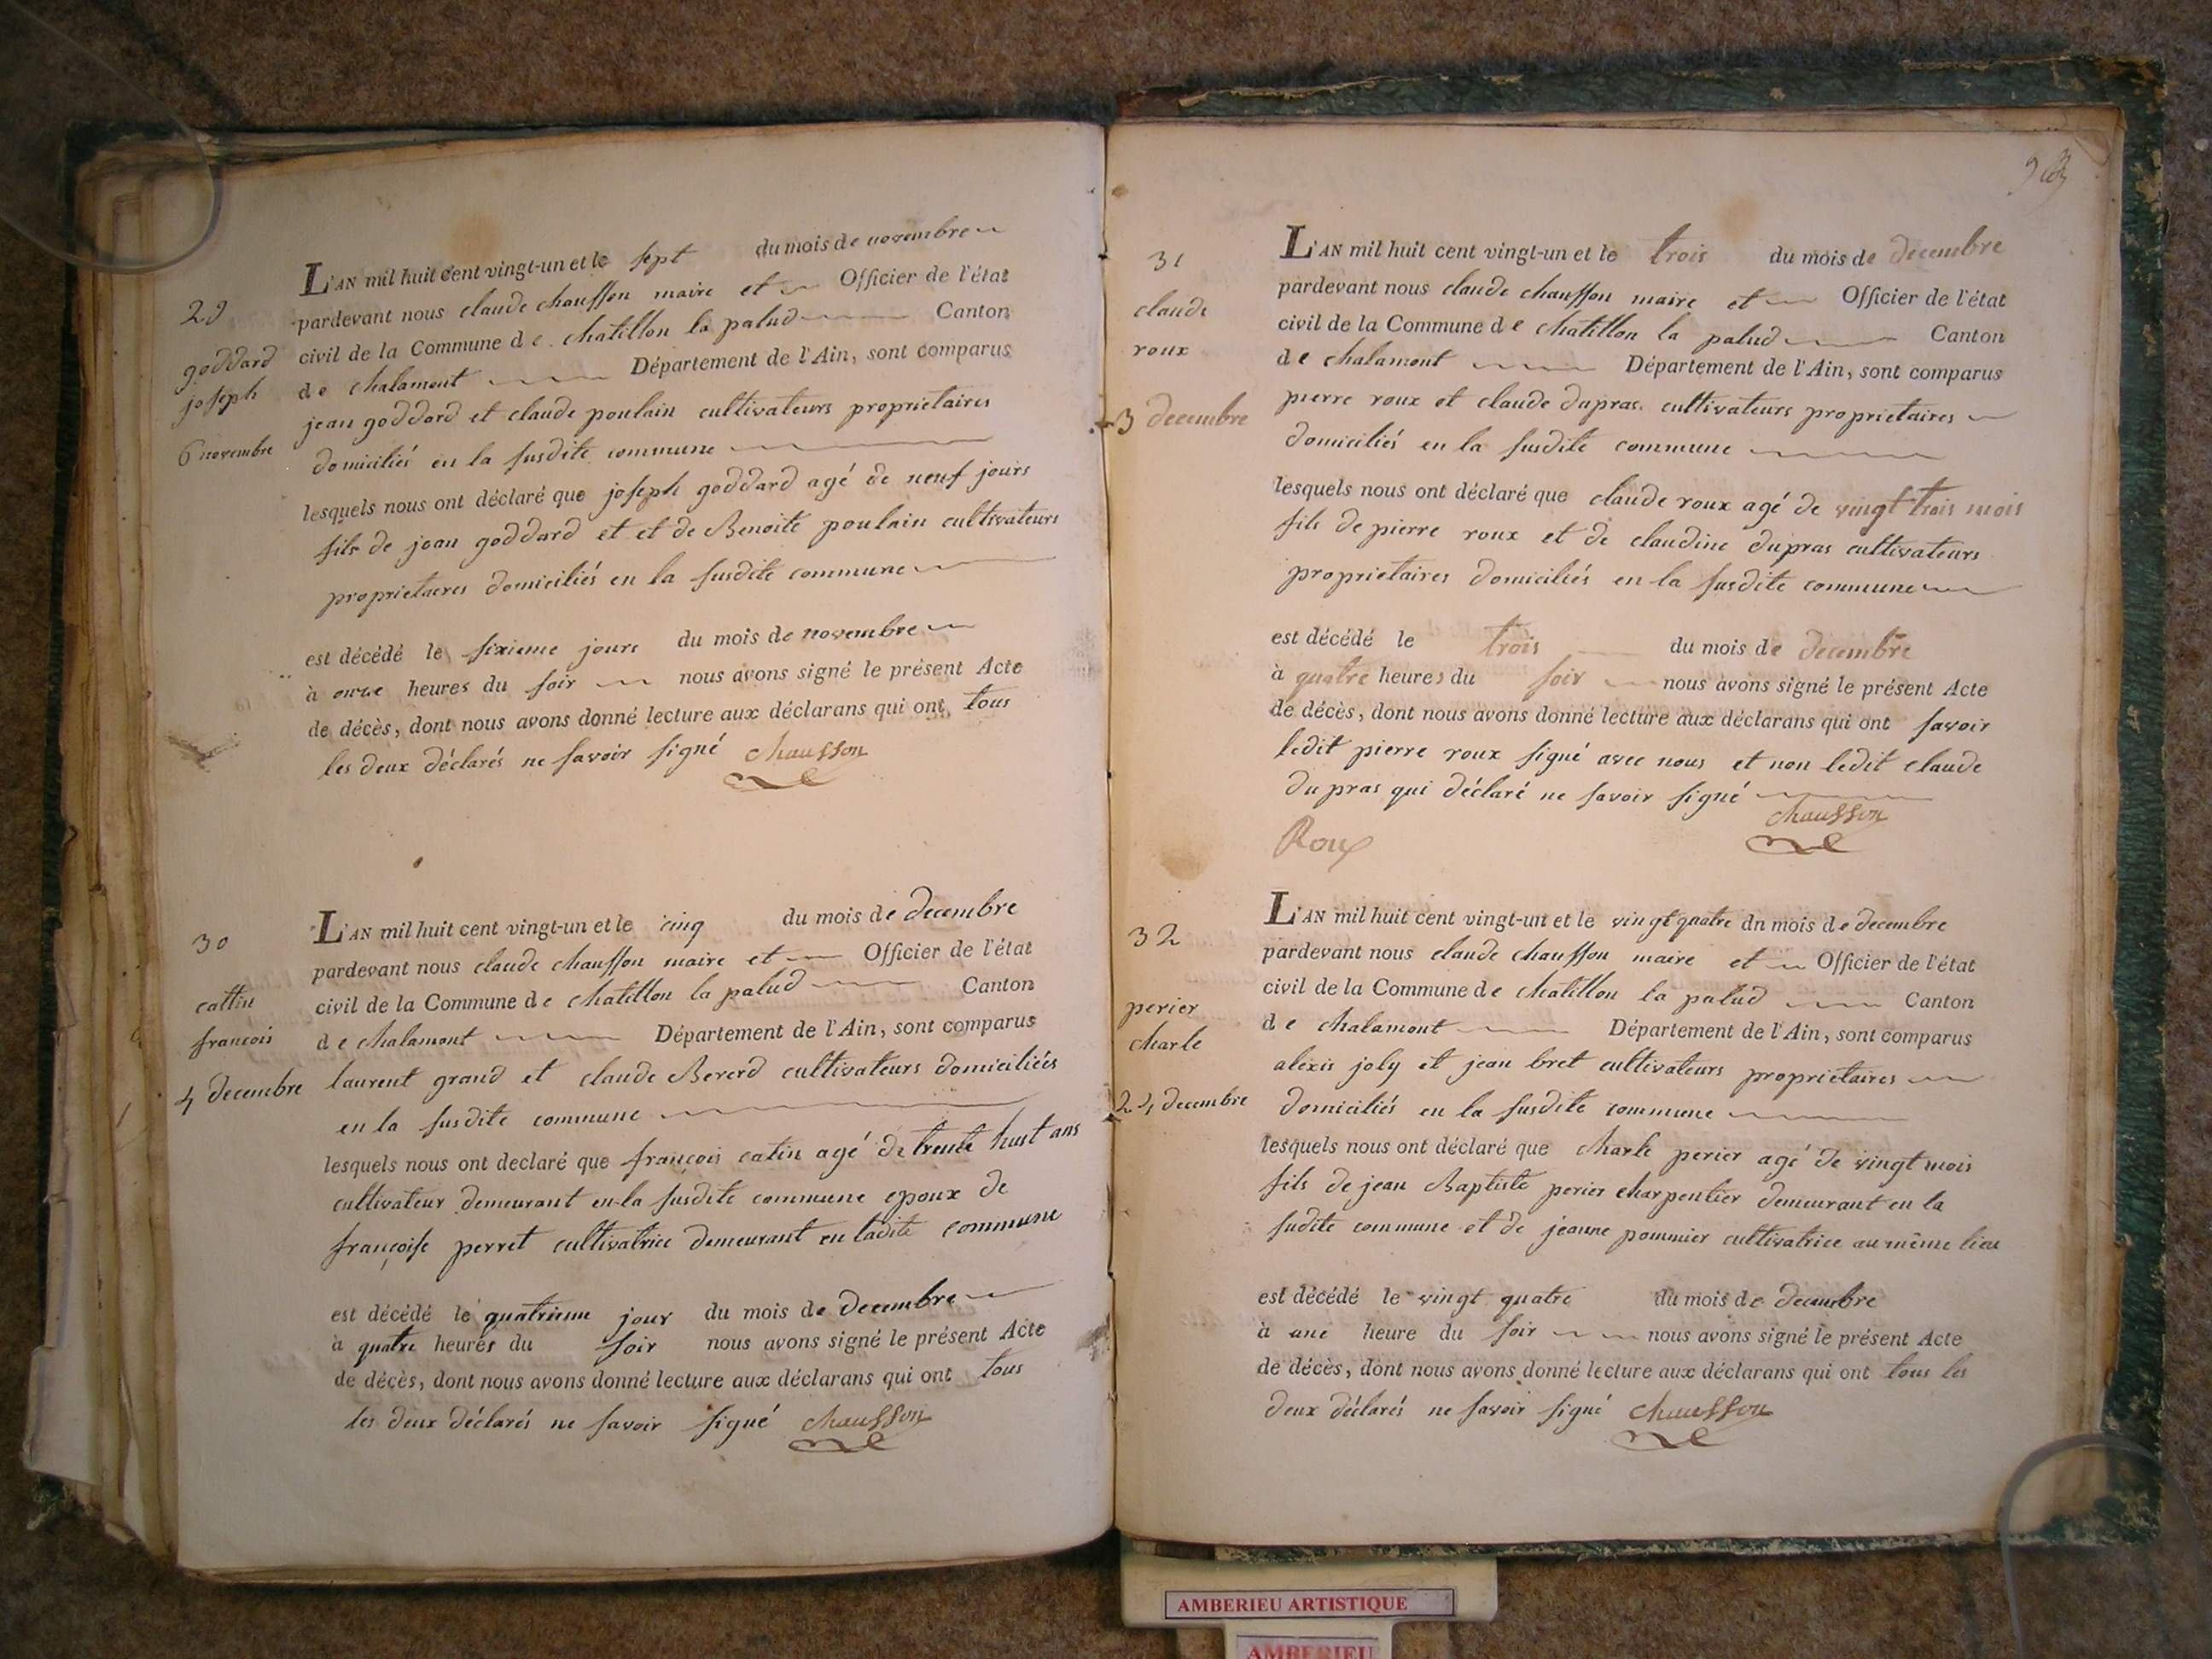 29
goddard
joseph
6 novembre
L'AN mil huit cent vingt-un et le sept du mois de novembre
pardevant nous claude chausson maire et Officier de l'état
civil de la Commune de chatillon la palud Canton
de chalamont Département de l'Ain, sont comparus
jean goddard et claude poulain cultivateurs proprietaires
domiciliés en la susdite commune
lesquels nous ont déclaré que joseph goddard agé de neuf jours
fils de jean goddard et et de Benoite poulain cultivateurs
proprietaires domiciliés en la susdite commune
est décédé le sixieme jours du mois de novembre
à onze heures du soir nous avons signé le présent Acte
de décès, dont nous avons donné lecture aux déclarans qui ont tous
les deux déclarés ne savoir signé chausson
30
cattin
francois
4 decembre
L'AN mil huit cent vingt-un et le cinq du mois de decembre
pardevant nous claude chausson maire et Officier de l'état
civil de la Commune de chatillon la palud Canton
de chalamont Département de l'Ain, sont comparus
laurent grand et claude Bererd cultivateurs domiciliées
en la susdite commune
lesquels nous ont declaré que françois catin agé de trente huit ans
cultivateur demeurant en la susdite commune epoux de
françoise perret cultivatrice demeurant en ladite commune
est décédé le quatrieme jour du mois de decembre
à quatre heures du soir nous avons signé le présent Acte
de décès, dont nous avons donné lecture aux déclarans qui ont tous
les deux déclarés ne savoir signé chausson
31
claude
roux
3 decembre
L'AN mil huit cent vingt-un et le trois du mois de decembre
pardevant nous claude chausson maire et Officier de l'état
civil de la Commune de chatillon la palud Canton
de chalamont Département de l'Ain, sont comparus
pierre roux et claude dupras cultivateurs proprietaires
domiciliés en la susdite commune
lesquels nous ont déclaré que claude roux agé de vingt trois mois
fils de pierre roux et de claudine dupras cultivateurs
proprietaires domiciliés en la susdite commune
est décédé le trois du mois de decembre
à quatre heures du soir nous avons signé le présent Acte
de décès, dont nous avons donné lecture aux déclarans qui ont savoir
ledit pierre roux signé avec nous et non ledit claude
dupras qui déclaré ne savoir signé
chausson
Roux
32
perier
charle
24 decembre
L'AN mil huit cent vingt-un et le vingt quatre dn mois de decembre
pardevant nous claude chausson maire et Officier de l'état
civil de la Commune de chatillon la palud Canton
de chalamont Département de l'Ain, sont comparus
alexis joly et jean bret cultivateurs proprietaires
domiciliés en la susdite commune
lesquels nous ont déclaré que charle perier agé de vingt mois
fils de jean Baptiste perier charpentier demeurant en la
sudite commune et de jeanne pommier cultivatrice au même lieu
est décédé le vingt quatre du mois de decembre
à une heure du soir nous avons signé le présent Acte
de décès, dont nous avons donné lecture aux déclarans qui ont tous les
deux déclarés ne savoir signé chausson
AMBERIEU ARTISTIQUE
AMBERIEU